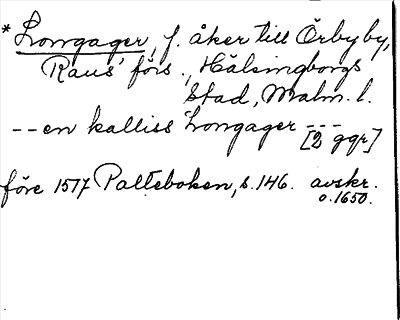 * Longager, f. åker till Örby by,
Raus' förs., Hälsingborgs
Stad, Malm. l.
-- en kalliss Longager ---
[2 ggr]
före 1517 Palteboken, s. 146. avskr.
o. 1650.